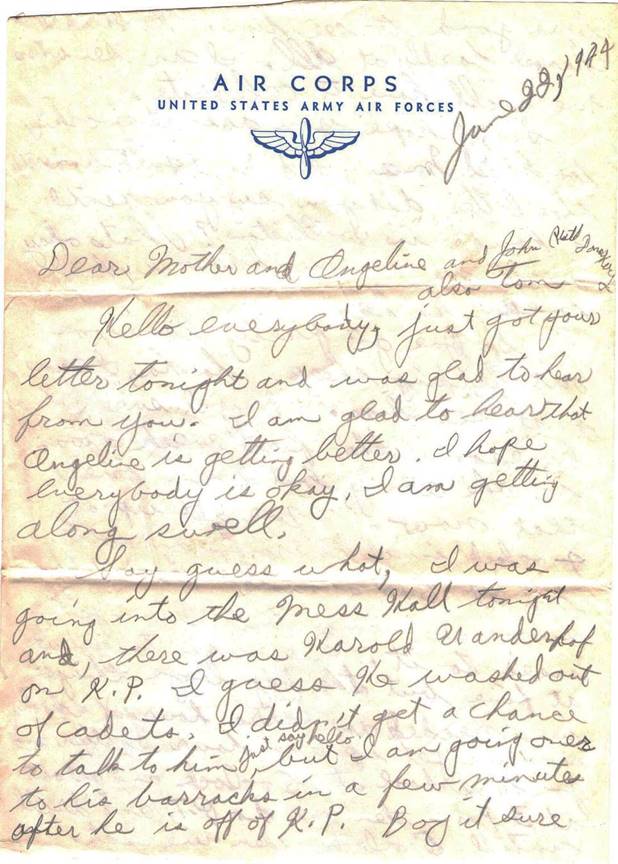 AIR CORPS
UNITED STATES ARMY AIR FORCES
June 22, 1944
Dear Mother and Angeline and John
also Tom
Hello everybody, just got your
letter tonight and was glad to hear
from you. I am glad to hear that
Angeline is getting better. I hope
everybody is okay. I am getting
along swell.
Say guess what, I was
going into the Mess Hall tonight
and, there was Harold Vanderhof
on K.P. I guess He washed out
of cadets. I didn't get a chance
to talk to him just say hello, but I am going over
to his barracks in a few minutes
after he is off of K.P. Boy it sure